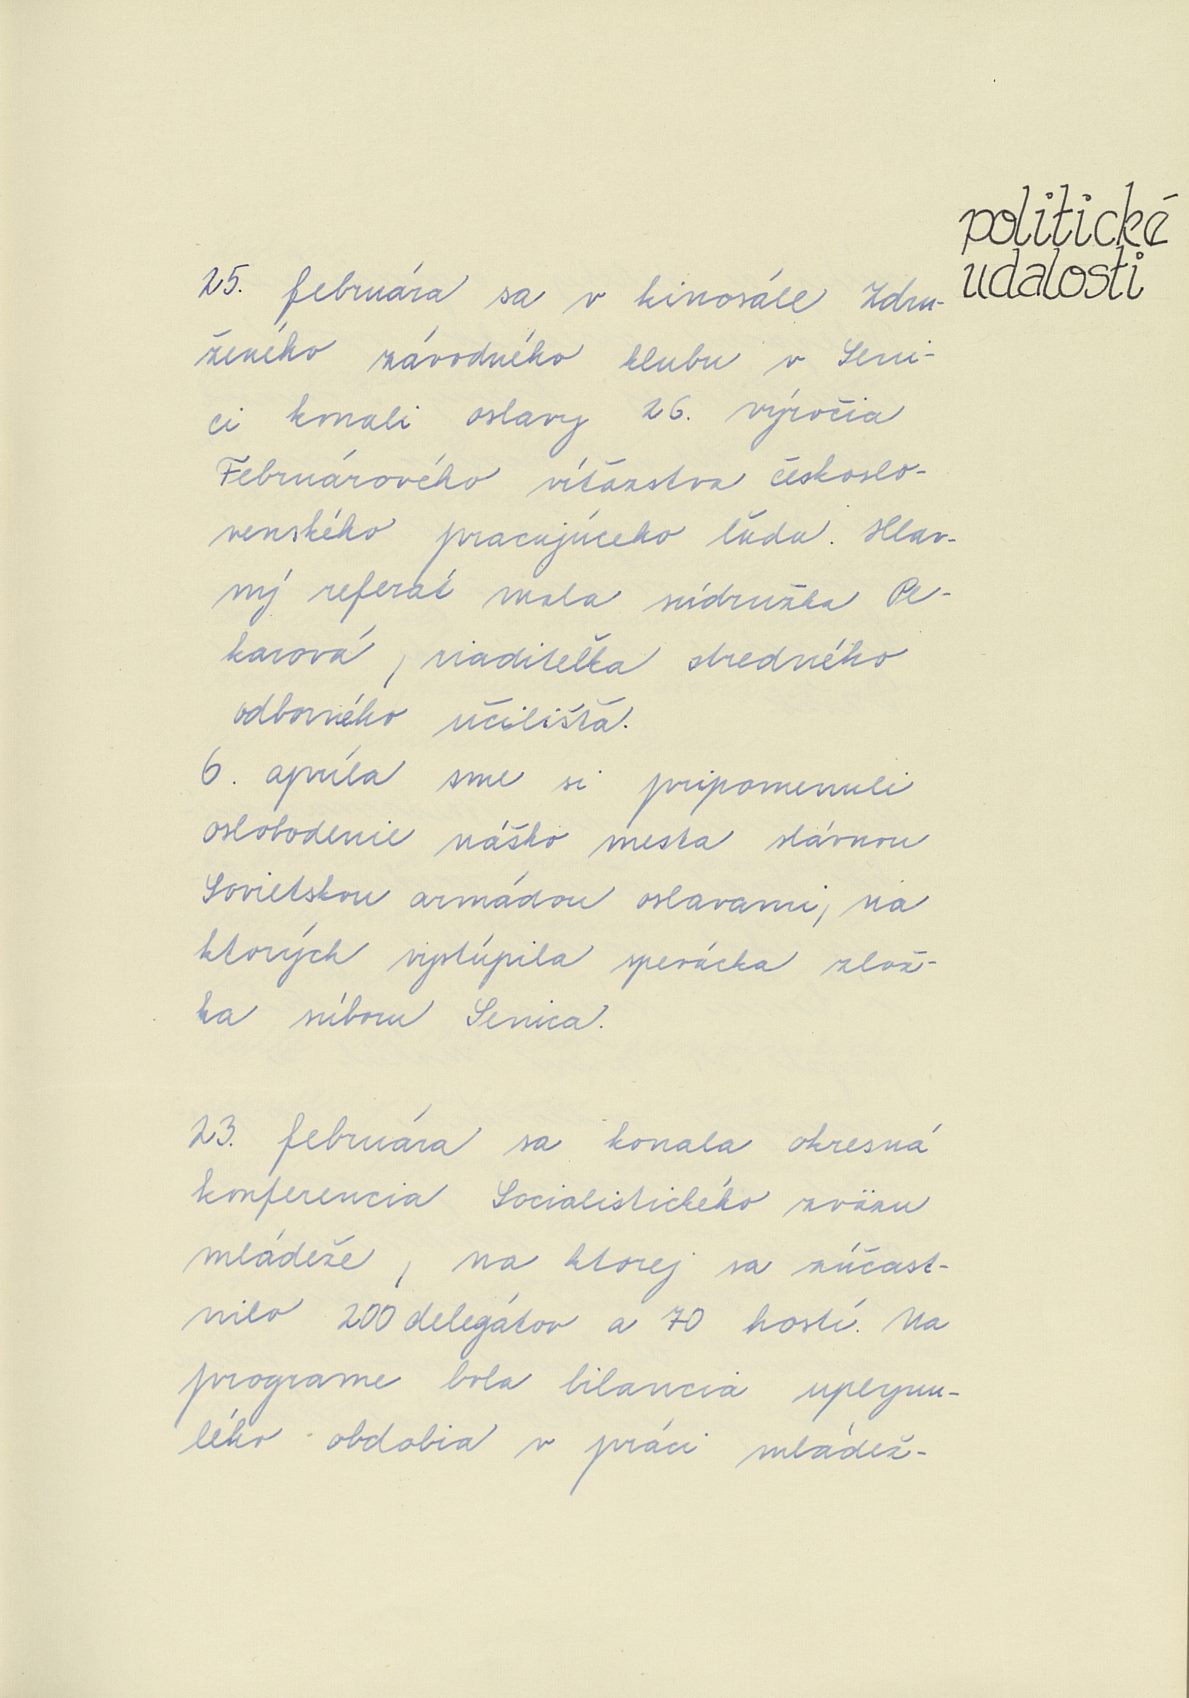 politické
udalosti
25. februára sa v kinosále Zdru-
ženého závodného klubu v Seni-
ci konali oslavy 26. výročia
Februárového víťazstva českoslo-
venského pracujúceho ľudu. Hlav-
ný referát mala súdružka Pe-
karová, riaditeľka stredného
odborného učilišťa.
6. apríla sme si pripomenuli
oslobodenie nášho mesta slávnou
Sovietskou armádou oslavami, na
ktorých vystúpila spevácka zlož-
ka súboru Senica.
23. februára sa konala okresná
konferencia Socialistického zväzu
mládeže, na ktorej sa zúčast-
nilo 200 delegátov a 70 hostí. Na
programe bola bilancia uplynu-
lého obdobia v práci mládež-